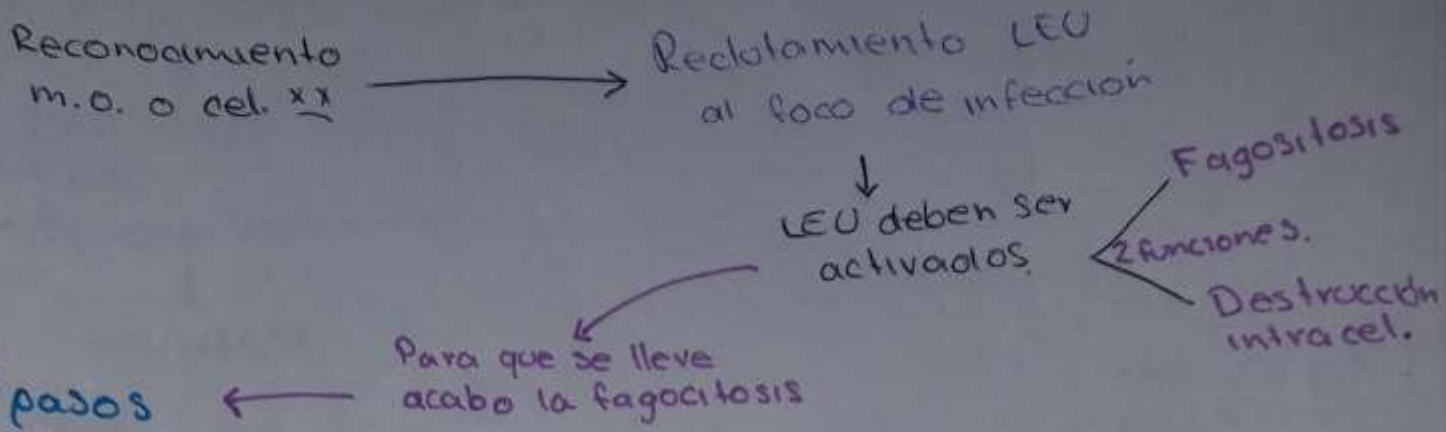 Reconocimiento
m.o. o cel. xx
Reclutamiento LEU
al foco de infección
LEU deben ser
activados.
Fagositosis
2 funciones.
Destrucción
intracel.
Para que se lleve
acabo la fagocitosis
pasos